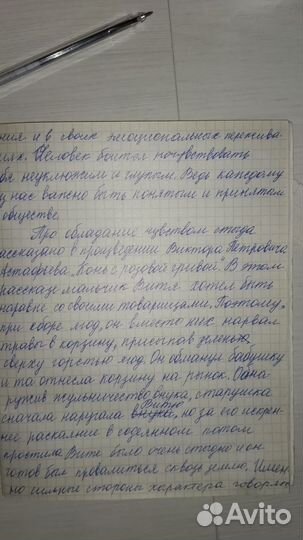 ния и в своих эмоциональных пережива-
иях. Человек боится почувствовать
бя неуклюжим и глупым. Ведь каждому
у нас важно быть понятым и принятым
обществе.
Про обладание чувством стыда
ассказано в произведении Виктора Петровича
Астафьева "Конь с розовой гривой". В этом
рассказе мальчик Витя хотел быть
наравне со своими товарищами. Поэтому,
при сборе ягод, он вместо них нарвал
травы в корзину, присыпав зелень
сверху горстью ягод. Он обманул бабушку
и та отнесла корзину на рынок. Обна-
ружив жульничество внука, старушка
сначала наругала Витю, но за его искрен-
нее раскаяние в содеянном потом
простила. Вите было очень стыдно и он
готов был провалиться сквозь землю. Имен-
но сильные стороны характера говорят
Avito